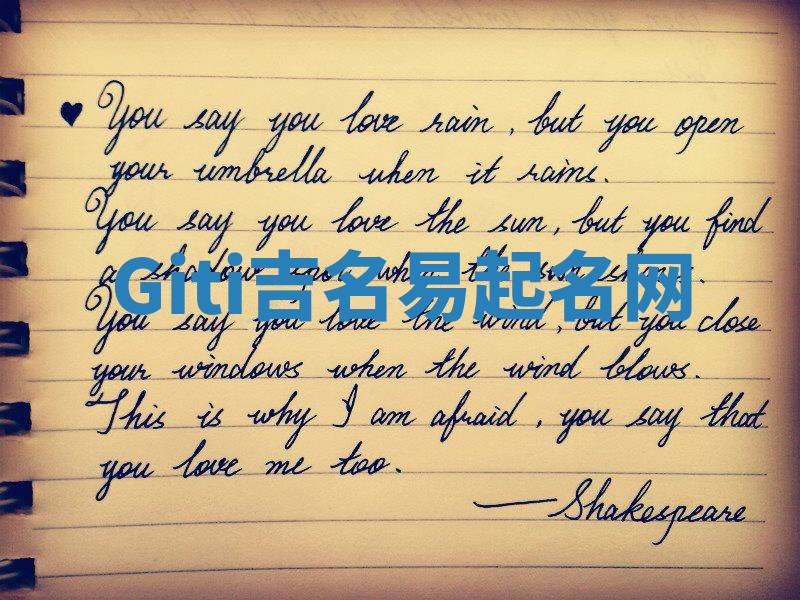 ♥ You say you love rain, but you open
your umbrella when it rains.
You say you love the sun, but you find
a shadow spot when the sun shines.
Giti吉名易起名网
You say you love the wind, but you close
your windows when the wind blows.
This is why I am afraid, you say that
you love me too.
— Shakespeare